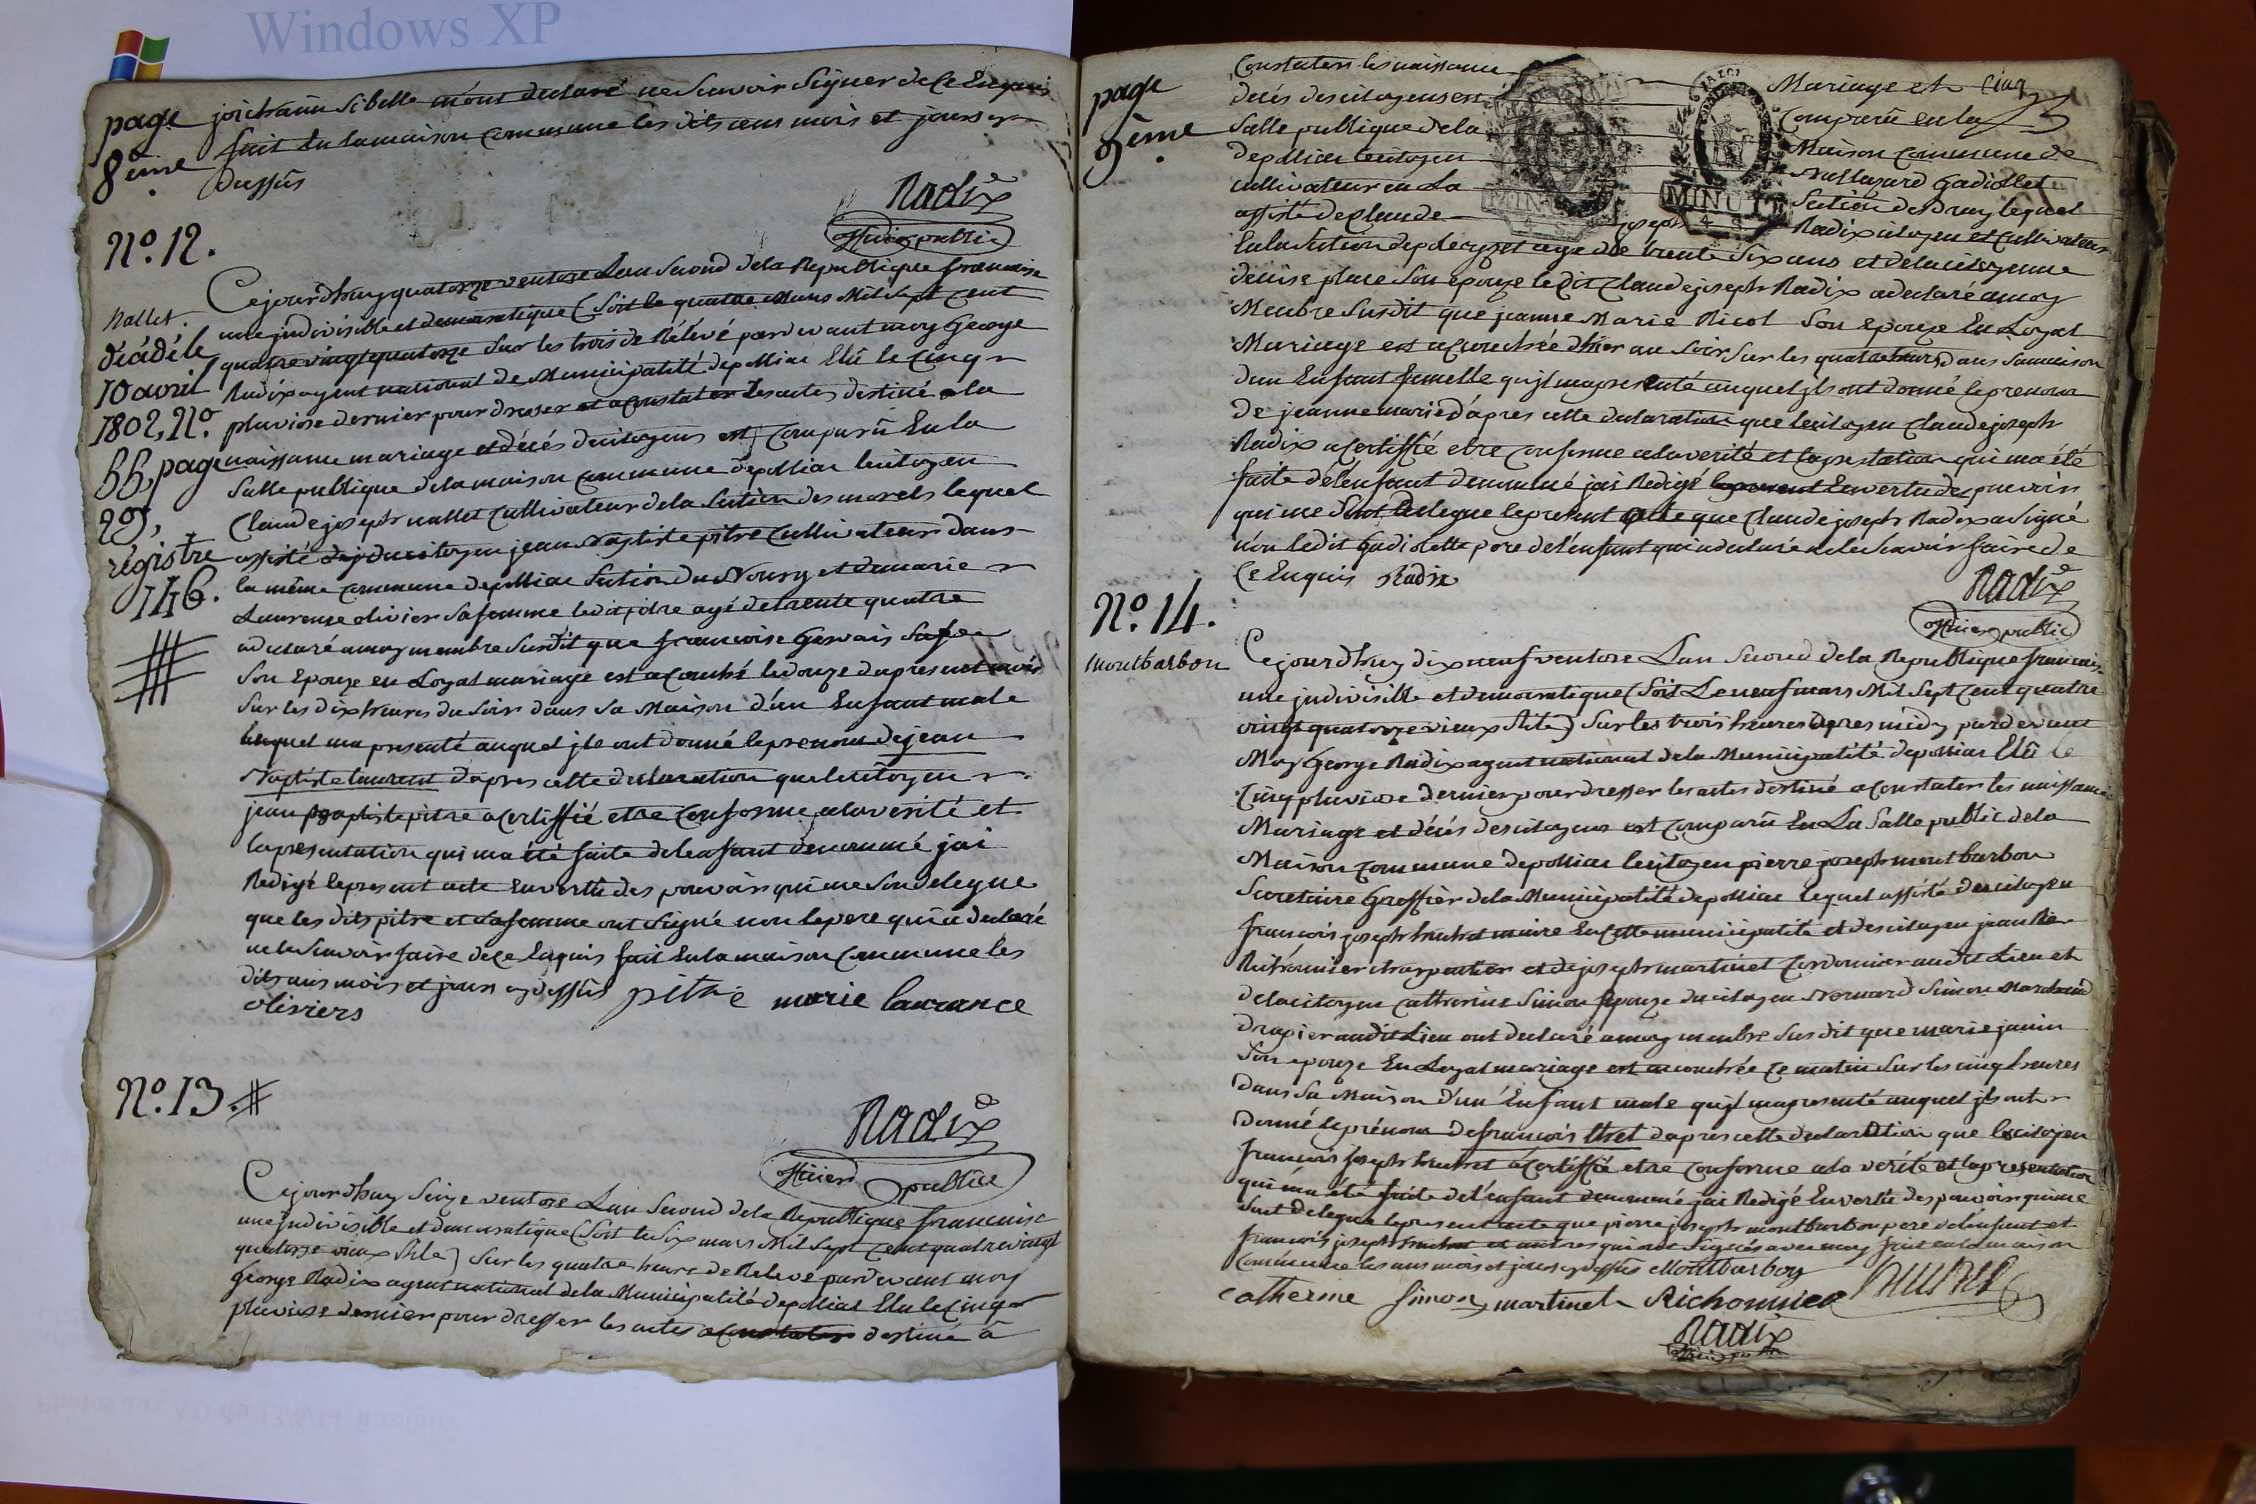 Windows XP
page
8ème
joichaim Sibelle m'ont declaré ne Scavoir Signer de Ce Enquis
fait En la maison commune les dits ans mois et jours cy
Dessus
Radix
officier public
No. 12.
Nallet.
décédé le
10 avril
1802, No.
55, page
29,
régistre
146.
Cejourdhuy quatorze ventose Lan Second dela Republique francaise
une jndivisible et democratique (Soit le quatre Mars Mil Sept Cent
quatre vingt quatorze Sur les trois de Rélévé pardevant moy George
Radix agent national de Municipalité depolliac Elû le Cinq
pluviose dernier pour dresser et aconstater les actes destiné a la
naissance mariage et décés decitoyens est Comparû En la
Salle publique dela maison commune depolliac lecitoyen
Claude joseph nallet Cultivateur dela Section des marets lequel
assisté du citoyen jean Baptiste pitre Cultivateur dans
la même Commune depolliac Section du Nourg et de marie
Laurence olivier Sa femme ledit pitre agé de trente quatre
a declaré amoy membre Susdit que francoise Gervais
Son Epouze en Loyal mariage est acouché le douze dapresent mois
Sur les dix heures du Soir dans Sa Maison d'un Enfant male
lequel ma presenté auquel jls ont donné leprenom dejean
Baptiste laurent d'apres cette declaration que lecitoyen
jean Baptiste pitre a Certiffié etre Conforme alaverité et
lapresentation qui ma été faite delenfant denommé jai
Redigé lepresent acte Envertû des pouvoirs qui me Son delegue
que les dits pitre et Lafemme ont Signé non lepere qui a declaré
nele Scavoir faire de ce Enquis fait En la maison Commune les
dits ans mois et jours cy dessûs pitre marie laurance
oliviers
No. 13.
Radix
officier public
Cejourdhuy Seize ventose Lan Second dela Republique francaise
une jndivisible et democratique (Soit le Six mars Mil Sept Cent quatre vingt
quatorze vieux Stile) Sur les quatre heure de Relevé pardevant moy
George Radix agent national dela Municipalité depolliac Elu le Cinq
pluviose dernier pour dresser les actes aConstater destiné â
page
9ème
Constater les naissance Mariage et Cinq
decés descitoyens est Comparû en la
Salle publique dela Maison Commune de
depolliac lecitoyen Gadiollet
Cultivateur en La Section lequel
assisté de Claude joseph Radix citoyen et Cultivateur
En la Section et agé de trente Six ans et dela citoyenne
denise place Son epouze ledit Claude joseph Radix a declaré amoy
Membre Susdit que jeanne Marie Nicol Son epouze En Loyal
Mariage est acouchée d'hier au Soir Sur les quatre heures dans Samaison
d'un Enfant femelle quijl mapresenté auquel jls ont donné leprenom
de jeanne marie d'apres cette declaration que lecitoyen Claude joseph
Radix a Certiffié etre Conforme ala verité et lapresentation qui ma été
faite del'enfant denommé jai Redigé lepresent Envertu des pouvoirs
qui me Sont delegue lepresent acte que Claude joseph Radix a Signé
non ledit Gadiolette pere del'enfant qui a declaré nele Scavoir faire de
Ce Enquis Radix
Radix
officier public
No. 14.
Montbarbon
Cejourdhuy dix neuf ventose Lan Second dela Republique francaise
une jndivisible et democratique (Soit Le neuf mars Mil Sept Cent quatre
vingt quatorze vieux Stile) Sur les trois heures Depres midy pardevant
Moy George Radix agent national dela Municipalité depolliac Elû le
Cinq pluviose dernier pour dresser les actes destiné a Constater les naissance
Mariage et décés descitoyens est Comparû En La Salle public dela
Maison Commune depolliac lecitoyen pierre joseph montbarbon
Secretaire Greffier dela Municipalité depolliac lequel assisté ducitoyen
francois joseph huchet maire En Cette municipalité et ducitoyen jean
Richonnier charpentier et de joseph martinet Cordonnier audit Lieu et
delacitoyen Catherine Simon Epouze ducitoyen Bernard Simon Marchand
drapier audit Lieu ont declaré amoy membre Susdit que marie janin
Son epouze En Loyal mariage est acouchée Ce matin Sur les cinq heures
dans Sa Maison d'un Enfant male quijl mapresenté auquel jls ont
Donné leprénom defrancois d'apres cette declaration que lecitoyen
francois joseph huchet a Certiffié etre conforme ala verité et lapresentation
qui ma été faite del'enfant denommé jai Redigé Envertû des pouvoirs qui me
Sont delegué lepresent acte que pierre joseph montbarbon pere delenfant et
francois joseph huchet et autres qui ont Signés avec moy fait en la maison
Commune les ans mois et jours cy dessûs Montbarbon
Catherine Simon martinet Richonnier
Radix